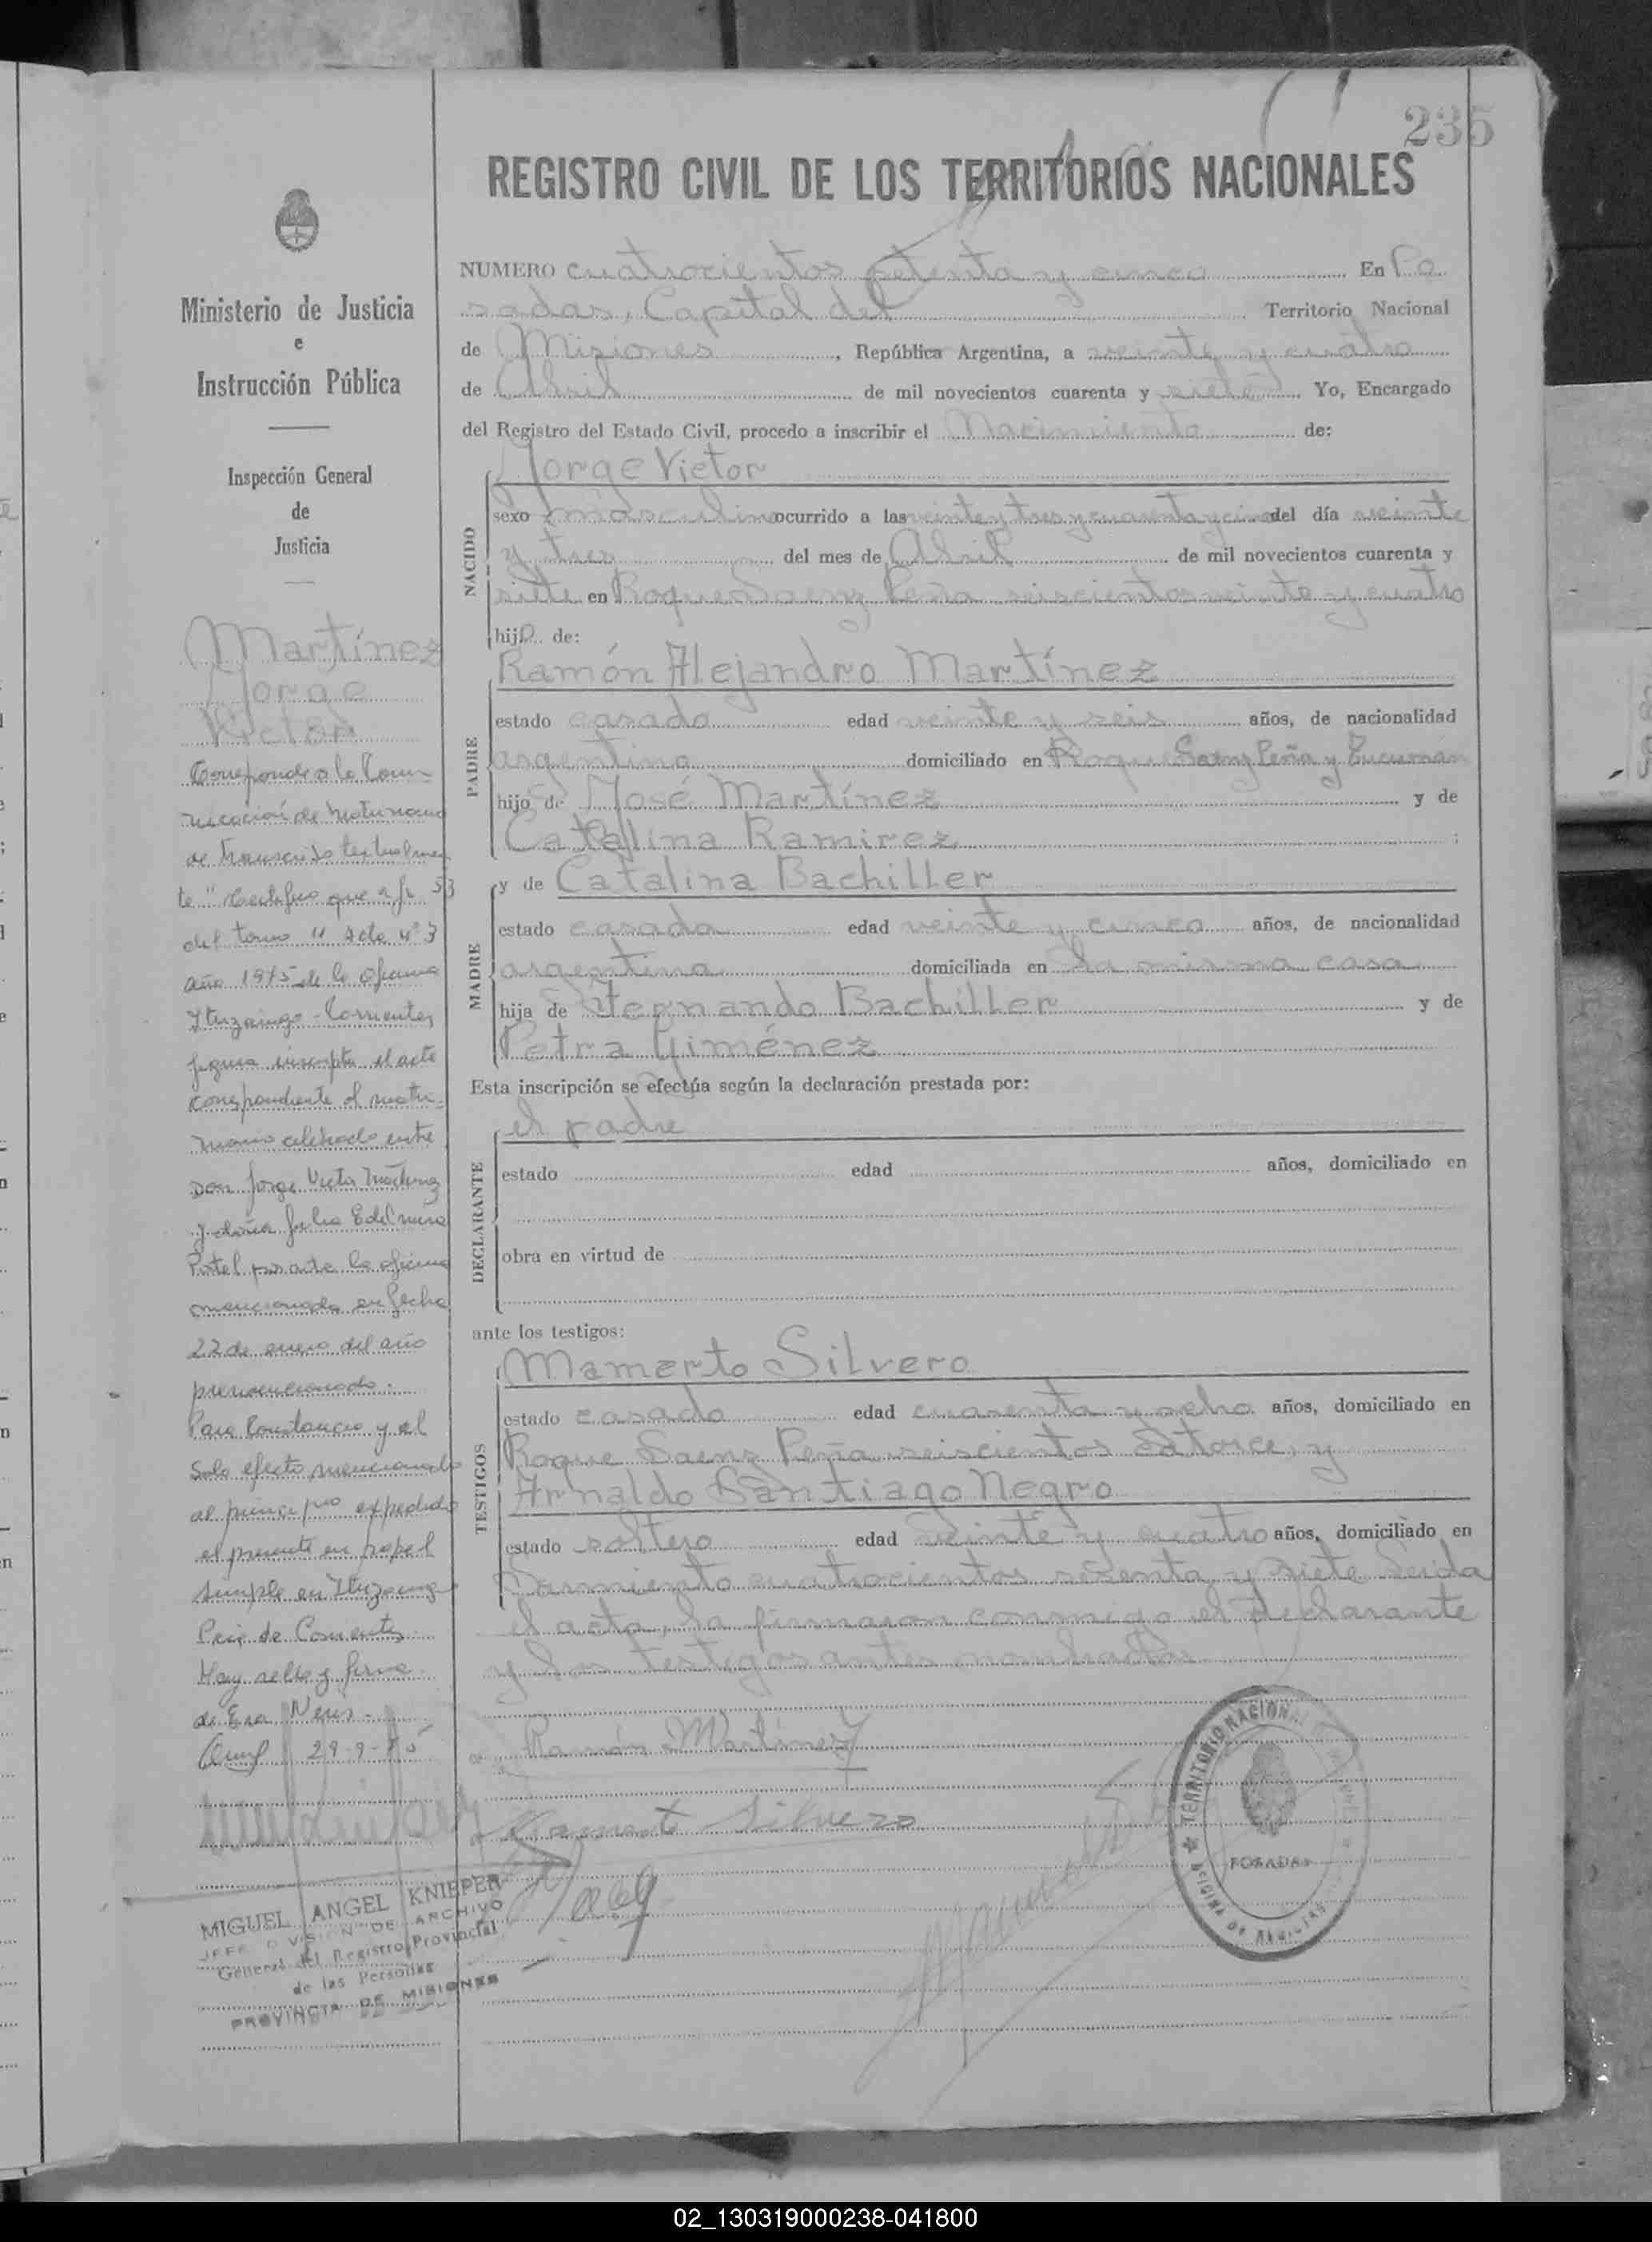 235
REGISTRO CIVIL DE LOS TERRITORIOS NACIONALES
NUMERO cuatrocientos setenta y cinco En Po
sadas, Capital del Territorio Nacional
de Misiones, República Argentina, a veinte y cuatro
de Abril de mil novecientos cuarenta y siete Yo, Encargado
del Registro del Estado Civil, procedo a inscribir el Nacimiento de:
NACIDO
Jorge Victor
sexo masculino ocurrido a las veinte y tres y cuarenta y cinco del día veinte
y tres del mes de Abril de mil novecientos cuarenta y
siete en Roque Saenz Peña seiscientos veinte y cuatro
hijo de:
PADRE
Ramón Alejandro Martínez
estado casado edad veinte y seis años, de nacionalidad
argentino domiciliado en Roque Saenz Peña y Tucumán
hijo de José Martínez y de
Catalina Ramirez;
MADRE
y de Catalina Bachiller
estado casada edad veinte y cinco años, de nacionalidad
argentina domiciliada en la misma casa
hija de Fernando Bachiller y de
Petra Giménez
Esta inscripción se efectúa según la declaración prestada por:
DECLARANTE
el padre
estado edad años, domiciliado en
obra en virtud de
ante los testigos:
TESTIGOS
Mamerto Silvero
estado casado edad cuarenta y ocho años, domiciliado en
Roque Saenz Peña seiscientos catorce, y
Arnaldo Santiago Negro
estado soltero edad veinte y cuatro años, domiciliado en
Sarmiento cuatrocientos sesenta y siete Leida
el acta, la firmaron conmigo el declarante
y los testigos antes nombrados
Ramón Martínez
Mamerto Silvero
TERRITORIO NACIONAL
POSADAS
Ministerio de Justicia
e
Instrucción Pública
Inspección General
de
Justicia
Martínez
Jorge
Victor
Corresponde a la Comu-
nicación de Matrimonio
de transcrito textualmen
te "Certifico que a fs 53
del tomo 11 Acta nº 3
año 1975 de la oficina
Ituzaingo - Corrientes
figura inscripta el acta
correspondiente al matri-
monio celebrado entre
Don Jorge Victor Martinez
y doña Julia Edelmira
por ante la oficina
mencionada en fecha
22 de enero del año
premencionado.
Para Constancia y al
Solo efecto mencionado
al principio expedido
el presente en papel
simple en Ituzaingo
Pcia de Corrientes
Hay sello y firma
de
29-9-
MIGUEL ANGEL KNIEPER
JEFE DIVISION DE ARCHIVO
General del Registro Provincial
de las Personas
PROVINCIA DE MISIONES
02_130319000238-041800